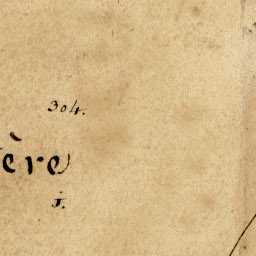 304.
ère
1.